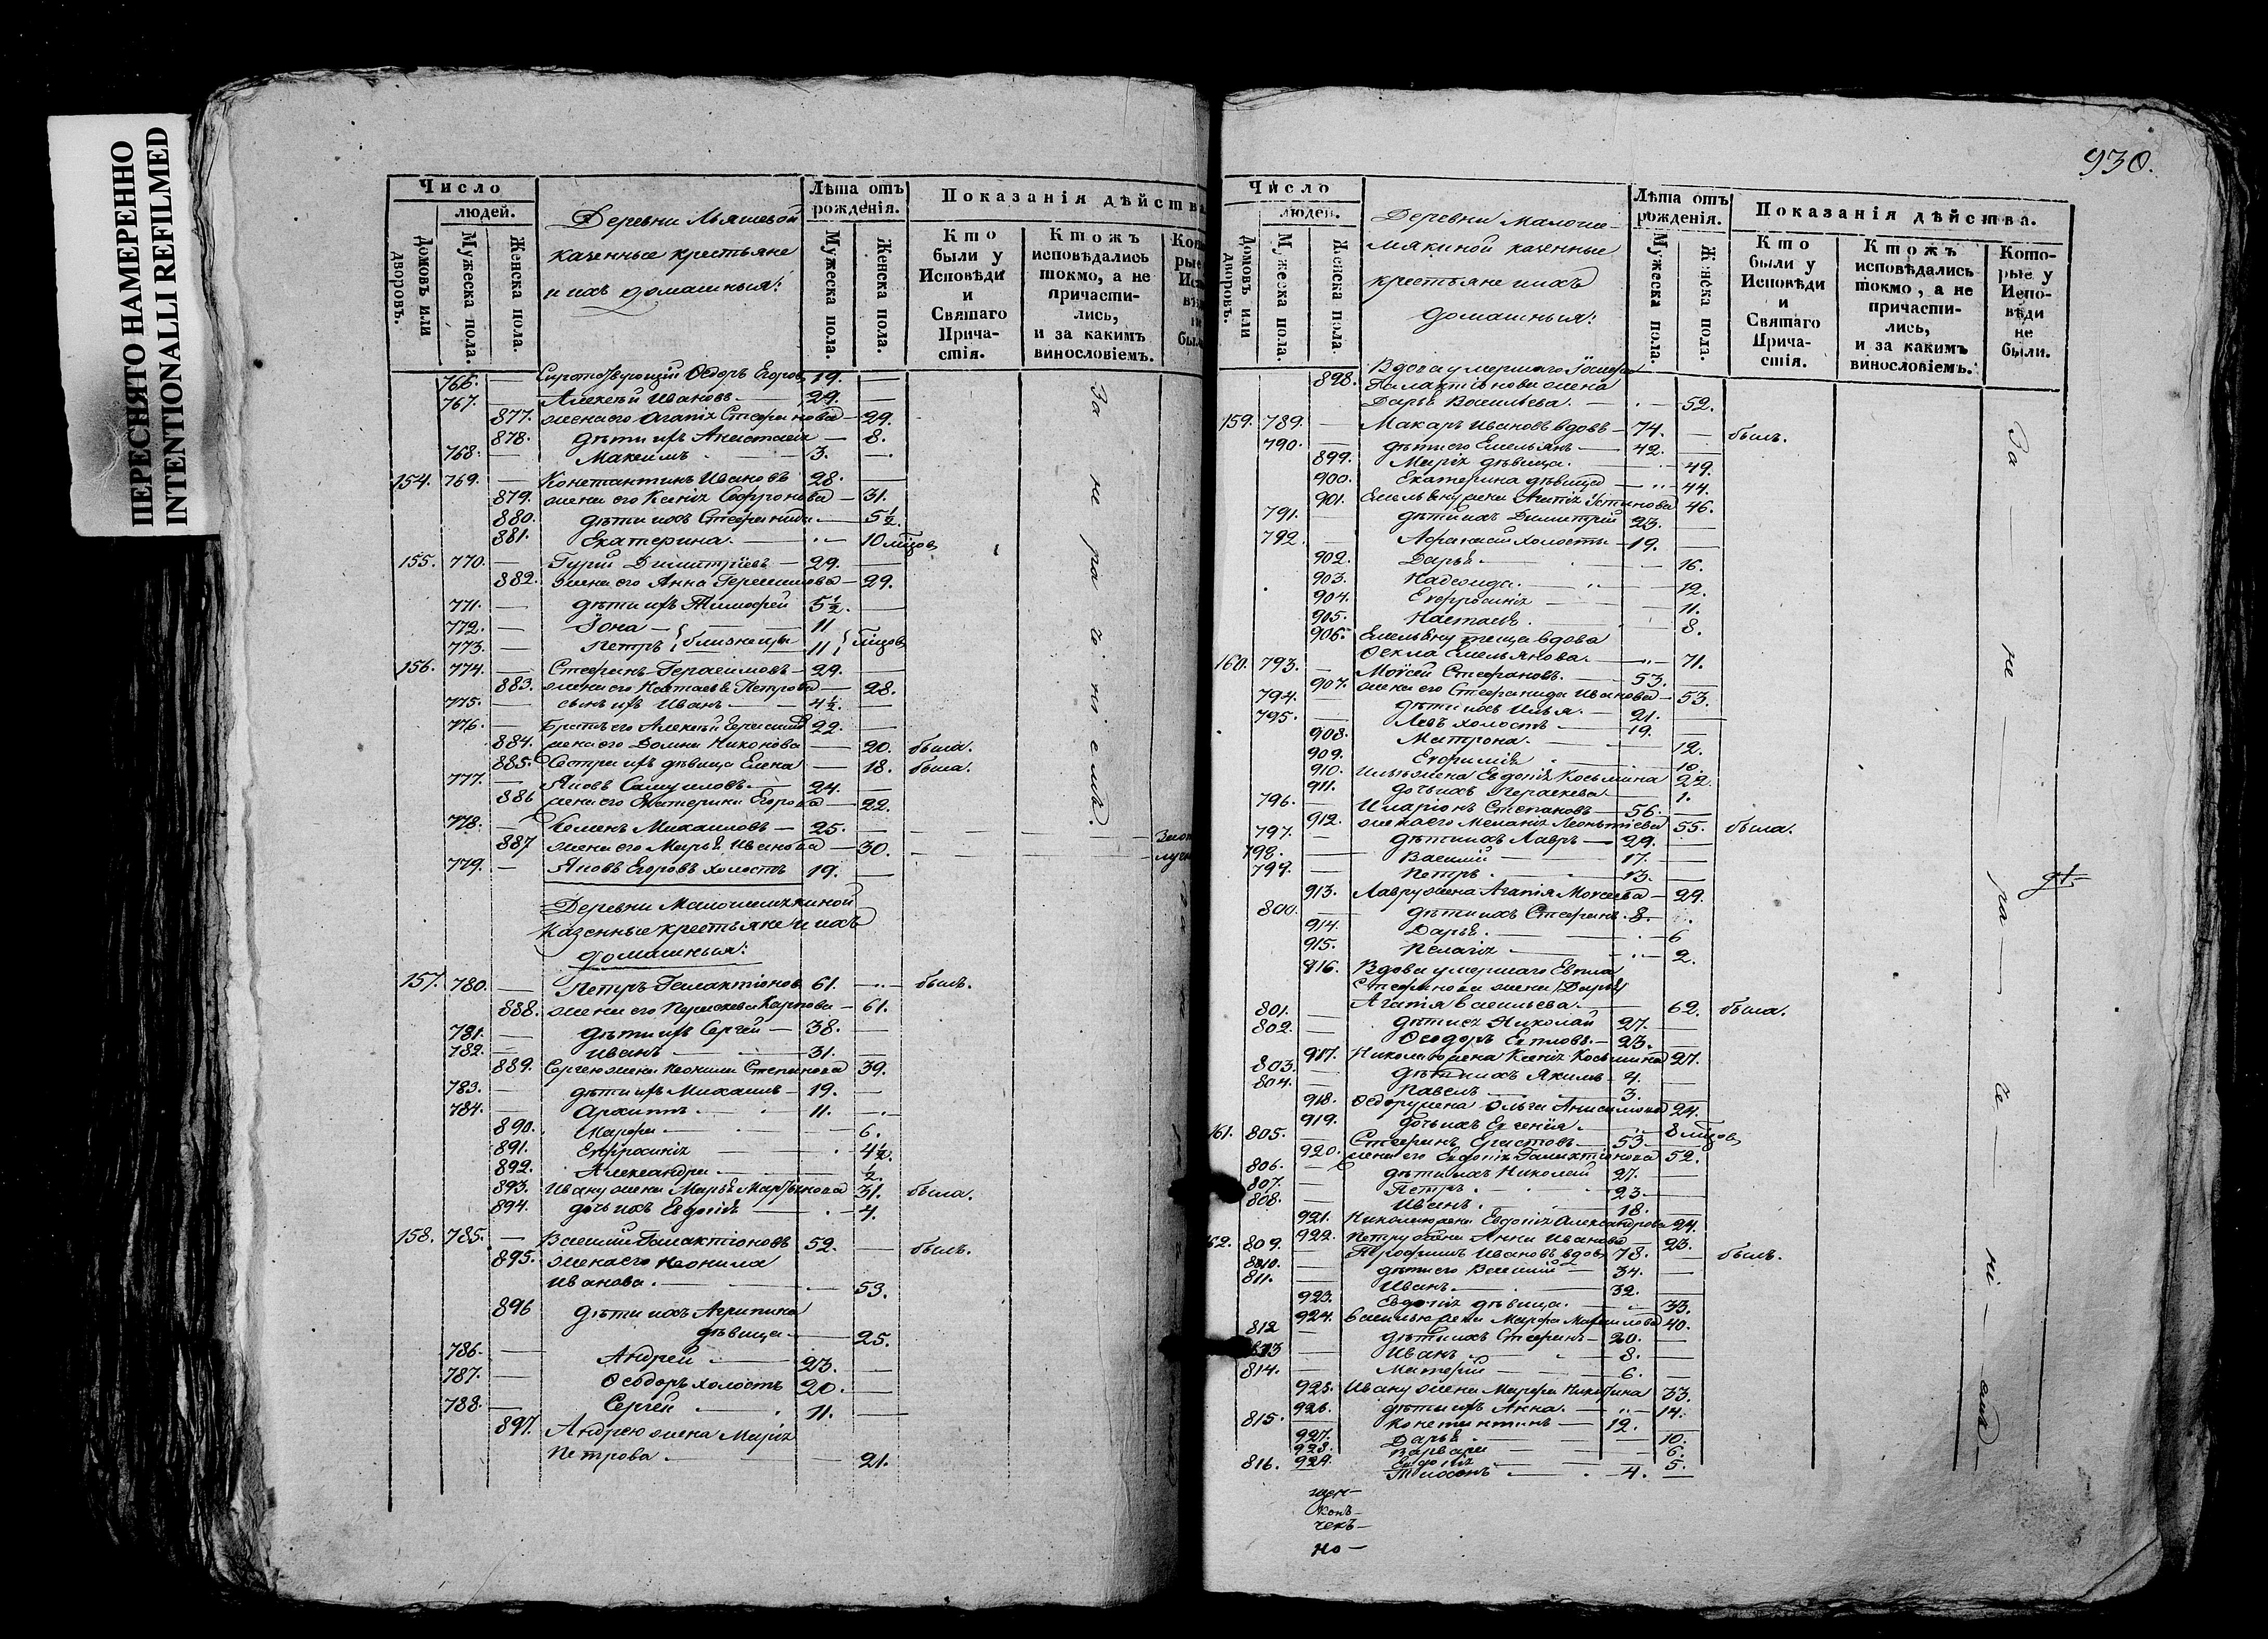 ПЕРЕСНЯТО НАМЕРЕННО
INTENTIONALLI REFILMED
Число
людей.
Домовъ или дворовъ.
Мужеска пола.
Женска пола.
Деревни Льяшевой
казенные крестьяне
и ихъ домашныя:
Лѣта отъ рожденія.
Мужеска пола.
Женска пола.
Показанія дѣйства
Кто были у Исповѣди и Святаго Прича-стія.
Ктожъ исповѣдались токмо, а не причасти-лись, и за какимъ винословіемъ.
766. — Ѳеодоръ Егоровъ 19. —
767. — Алексѣй Ивановъ — 29. —
877. жена его Агапія Стефанова — 29.
878. дѣти ихъ Анастасія — 8.
768. — Максимъ — 3. —
154. 769. — Константинъ Ивановъ 28. —
879. жена его Ксенія Софронова — 31.
880. дѣти ихъ Стефанида — 5½.
881. Екатерина. — 10 мцов
155. 770. — Гурій Димитріевъ — 29. —
882. жена его Анна Герасимова — 29.
771. — дѣти ихъ Тимофей 5½. —
772. — Іона — близнецы 11
773. — Петръ 11 мцов
156. 774. — Стефанъ Герасимовъ — 29. —
883. жена его Настасья Петрова — 28.
775. — сынъ ихъ Иванъ — 4½. —
776. — Братъ его Алексѣй Герасимовъ 22. —
884. жена его Домна Никонова — 20. была.
885. Сестра ихъ дѣвица Елена — 18. была.
777. — Яковъ Самуиловъ — 24. —
886 жена его Екатерина Егорова — 22.
778. — Семенъ Михаиловъ — 25. —
887 жена его Марья Иванова — 30.
779. — Яковъ Егоровъ холостъ 19. —
За не ра че ні емъ.
Деревни Малошемякиной
Казенные крестьяне и ихъ
домашныя:
157. 780. — Петръ Галактіоновъ 61. — былъ.
888. жена его Параскева Карпова — 61.
781. — дѣти ихъ Сергѣй — 38. —
782. — Иванъ — 31. —
889. Сергею жена Неонила Степанова 39.
783. — дѣти ихъ Михаилъ — 19. —
784. — Архиппъ — 11. —
890. Марфа — 6.
891. Евфросинія — 4½.
892. Александра — ½.
893. Ивану жена Марья Мартынова 31. была.
894. дочь ихъ Евдокія — 4.
158. 785. — Василій Галактіоновъ 52. — былъ.
895. жена его Неонила
Иванова. — 53.
896 дѣти ихъ Агрипина
дѣвица — 25.
786. — Андрей — 23. —
787. — Ѳеодоръ холостъ 20. —
788. — Сергѣй — 11. —
897. Андрею жена Марія
Петрова. — 21.
930.
Число
людей.
Домовъ или дворовъ.
Мужеска пола.
Женска пола.
Деревни Малоше-
мякиной казенные
крестьяне и ихъ
домашныя:
Лѣта отъ рожденія.
Мужеска пола.
Женска пола.
Показанія дѣйства.
Кто были у Исповѣди и Святаго Прича-стія.
Ктожъ исповѣдались токмо, а не причасти-лись, и за какимъ винословіемъ.
Кото-рые у Испо-вѣди не были.
Вдова умершаго Іосифа
898. Галактіонова жена
Дарья Васильева. — 52.
159. 789. — Макаръ Ивановъ вдовъ — 74. — былъ.
790. — дѣти его Емельянъ — 42. —
899. Марія дѣвица. — 49.
900. Екатерина дѣвица — 44.
901. Емельяну жена Агапія Устинова 46.
791. — дѣти ихъ Димитрій 23. —
792. — Афанасій холостъ — 19. —
902. Дарья. — 16.
903. Надежда. — 12.
904. Евфросинія — 11.
905. Настасья. — 8.
906. Емельяну теща вдова
Ѳекла Емельянова. — 71.
160. 793. — Моѵсей Стефановъ. — 53. —
907. жена его Стефанида Иванова — 53.
794. дѣти ихъ Илья. — 21. —
795. — Левъ холостъ — 19. —
908. Матрона. — 12.
909. Евфимія — 10.
910. Ильѣ жена Евдокія Косьмина 22.
911. дочь ихъ Параскева — 1.
796. — Иларіонъ Степановъ — 56. —
912. жена его Меланія Леонтіева 55. была.
797. — дѣти ихъ Лавръ — 29. —
798. — Василій — 17. —
799. — Петръ — 13. —
913. Лавру жена Агапія Моѵсеева — 29.
800. — дѣти ихъ Стефанъ 8. —
914. Дарья. — 6
915. Пелагія — 2.
916. Вдова умершаго Евпла
Стефанова жена /Дарья/
Агапія Васильева — 62. была.
801. — дѣти ея Николай 27. —
802. — Ѳеодоръ Евпловъ. — 23. —
917. Николаю жена Ксенія Косьмина 27.
803. — дѣти ихъ Якимъ 4. —
804. — Павелъ — 3. —
918. Ѳедору жена Ольга Анисимова 24.
919. дочь ихъ Евгенія. — 8 мцов
161. 805. — Стефанъ Евпловъ — 53 —
920. жена его Евдокія Галактіонова 52.
806. — дѣти ихъ Николай 27. —
807. — Петръ. — 23. —
808. — Иванъ. — 18. —
921. Николаю жена Евдокія Александрова 24.
922. Петру жена Анна Иванова — 23.
62. 809. — Трофимъ Ивановъ вдовъ 78. — былъ.
810. — дѣти его Василій — 34. —
811. — Иванъ. — 32. —
923. Евдокія дѣвица. — 33.
924. Василью жена Марфа 40.
812 — дѣти ихъ Стефанъ — 20. —
813 — Иванъ. — 8. —
814. — Матфей — 6. —
925. Ивану жена Марфа Никитина 33.
926. дѣти ихъ Анна. — 14.
815. — Константинъ — 12. —
927. Дарья — 10.
928. Варвара — 6.
929. Евдокія — 5.
816. — — 4. —
За — не — ра — че — ні — емъ